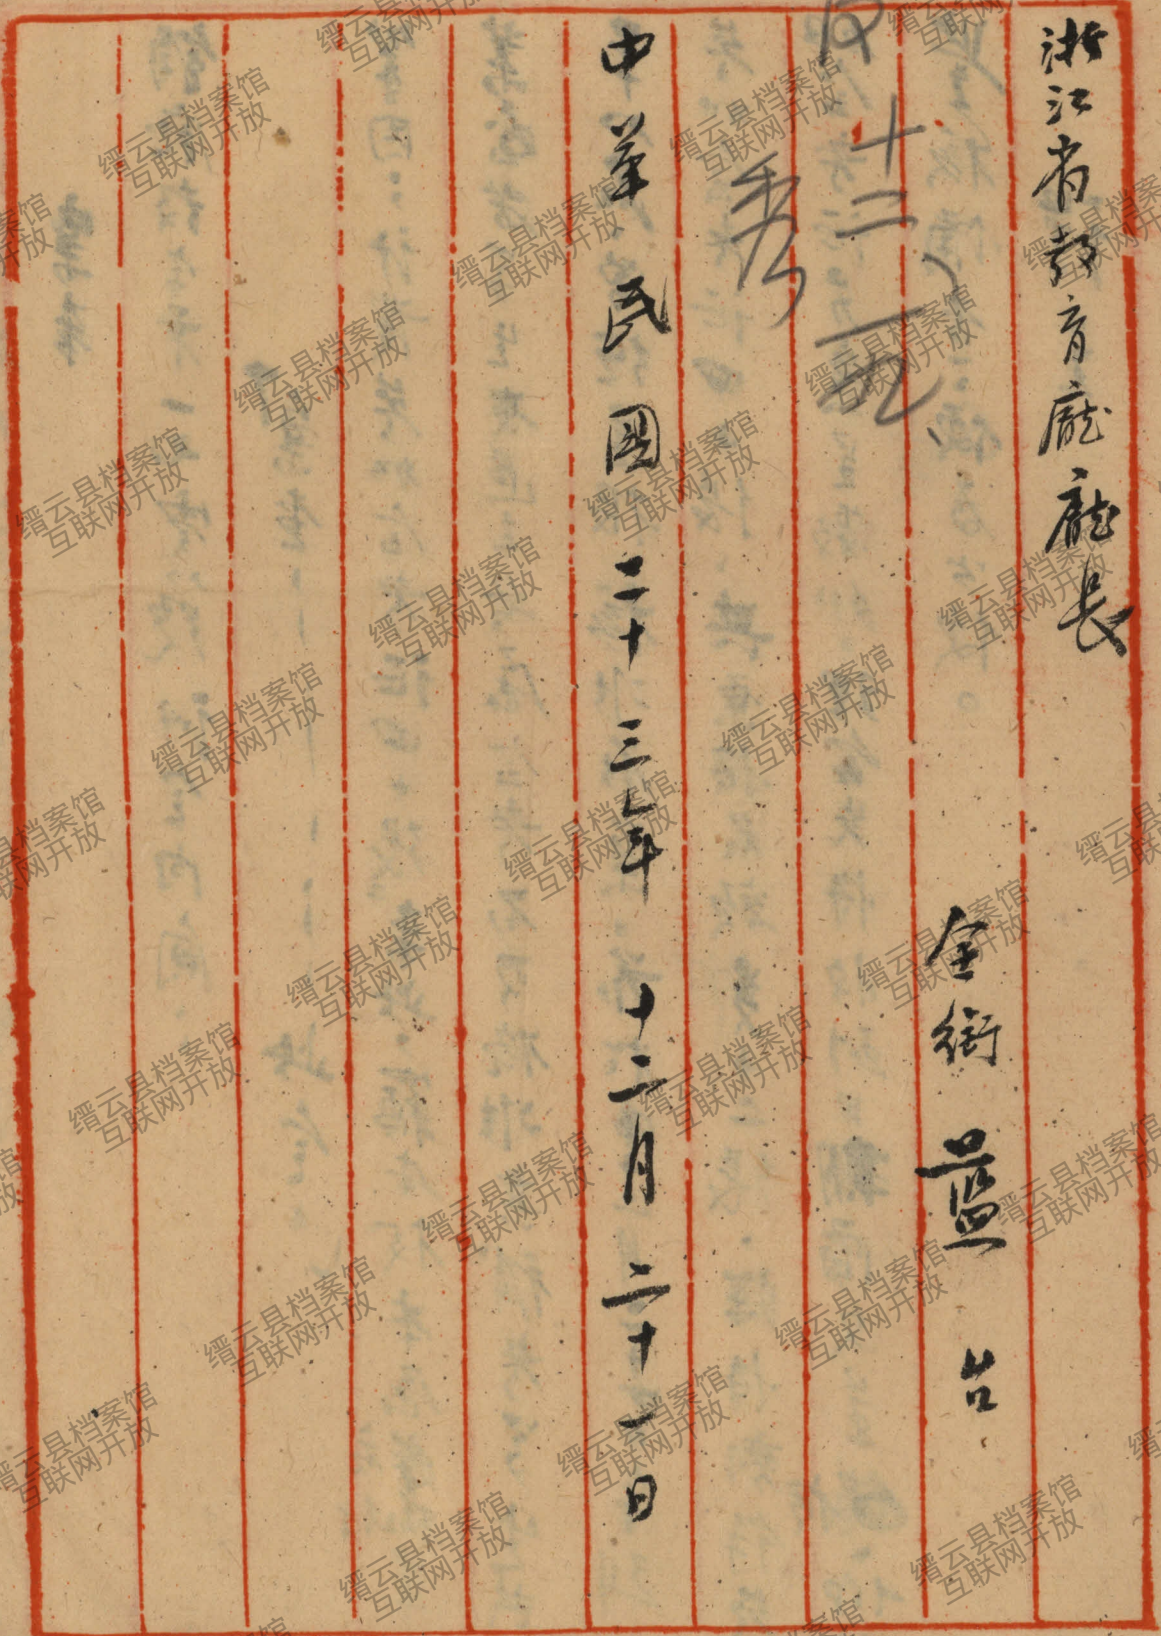 浙江省教育廳廳長
全銜藍 台
十二、九、
秀
中華民國二十三年十二月二十一日
缙云县档案馆
互联网开放